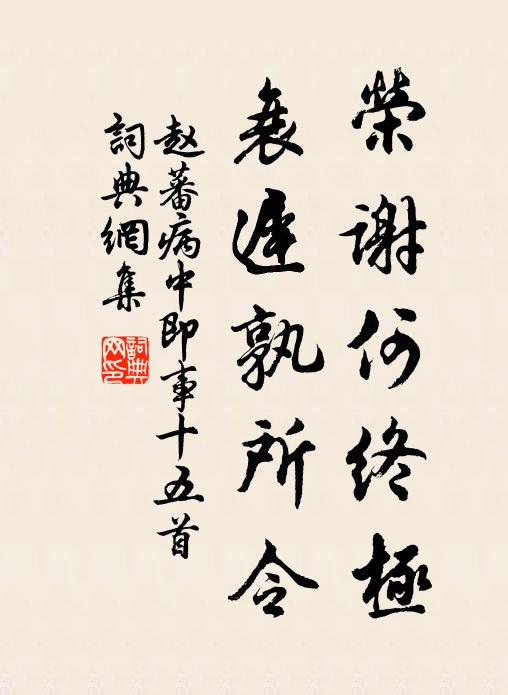 榮謝何終極
衰遲孰所令
赵蕃病中即事十五首
詞典網集
詞典
网印